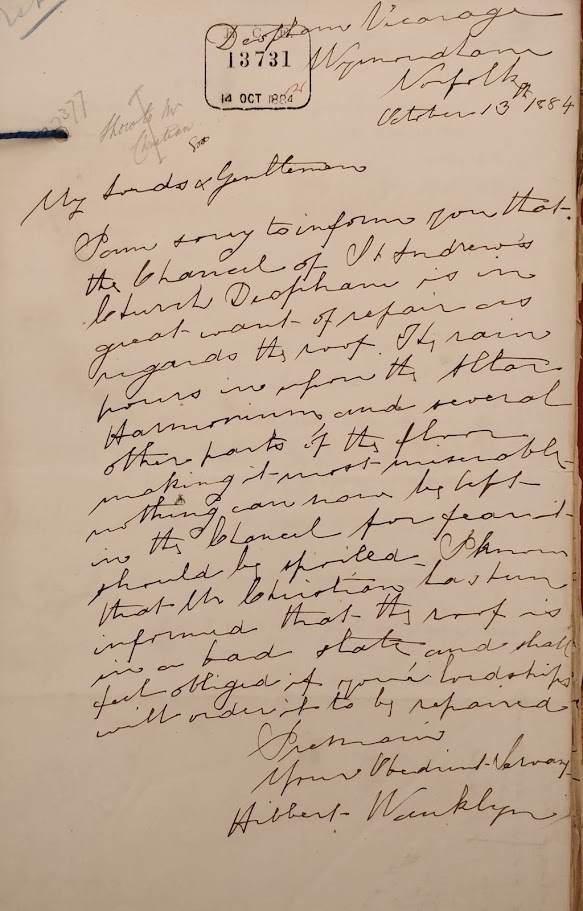 Deopham Vicarage
E. C.
13731
14 OCT 1884
Wymondham
Norfolk
October 13th 1884
Show to Mr
Christian
My Lords & Gentlemen
I am sorry to inform you that
the Chancel of St Andrew's
Church Deopham is in
great want of repair as
regards the roof. The rain
pours in upon the Altar
Harmonium, and several
other parts of the floor
making it most miserable
nothing can now be left
in the Chancel for fear it
should be spoiled. I know
that Mr Christian has been
informed that the roof is
in a bad state and shall
feel obliged if your lordships
will order it to be repaired
I remain
Your Obedient Servant
Hibbert Wanklyn